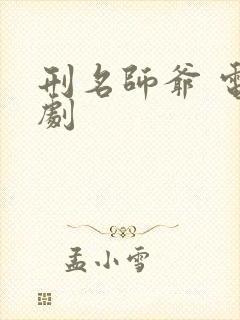 刑名師爺 電
劇
孟小雪